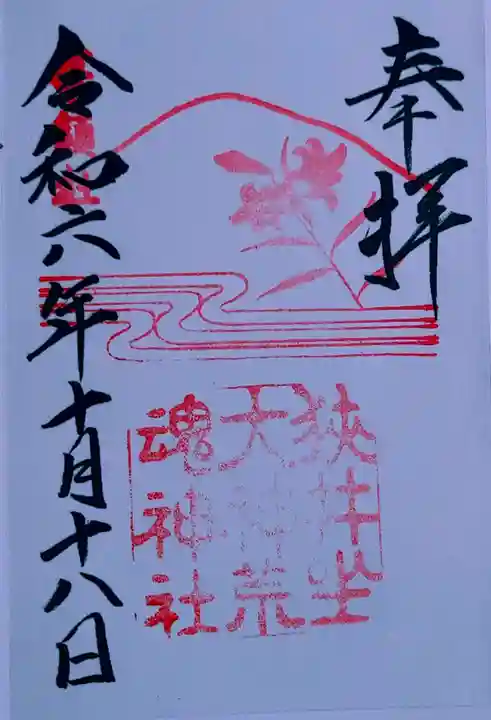 奉拝
狭井坐
大神荒
魂神社
令和六年十月十八日